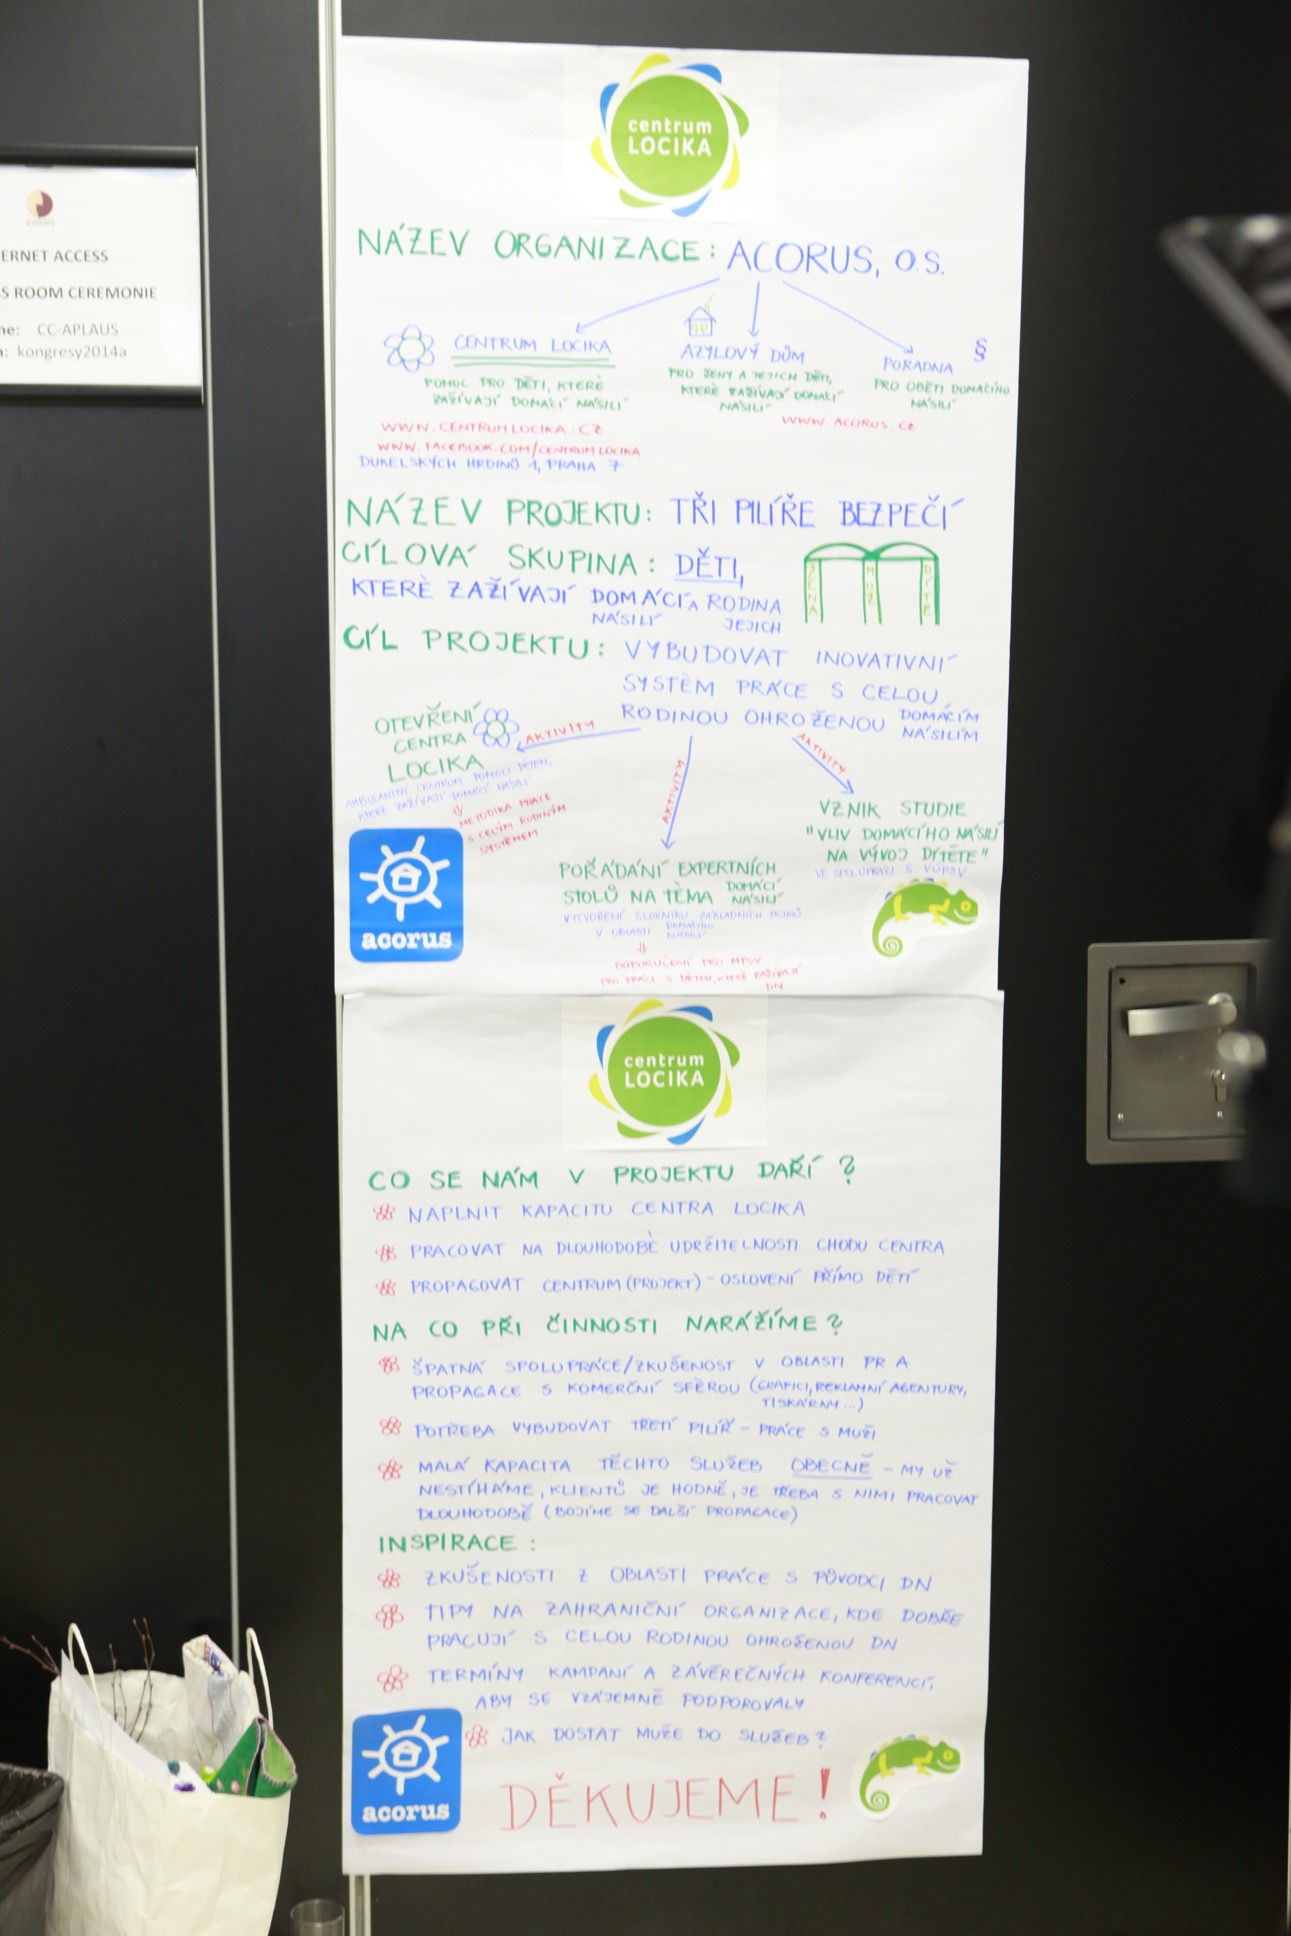 ERNET ACCESS
S ROOM CEREMONIE
me: CC-APLAUS
kongresy2014a
centrum
LOCIKA
NÁZEV ORGANIZACE: ACORUS, O.S.
CENTRUM LOCIKA
POMOC PRO DĚTI, KTERÉ
ZAŽÍVAJÍ DOMÁCÍ NÁSILÍ
WWW.CENTRUMLOCIKA.CZ
WWW.FACEBOOK.COM/CENTRUMLOCIKA
DUKELSKÝCH HRDINŮ 1, PRAHA 7
AZYLOVÝ DŮM
PRO ŽENY A JEJICH DĚTI,
KTERÉ ZAŽÍVAJÍ DOMÁCÍ
NÁSILÍ
§
PORADNA
PRO OBĚTI DOMÁCÍHO
NÁSILÍ
WWW.ACORUS.CZ
NÁZEV PROJEKTU: TŘI PILÍŘE BEZPEČÍ
CÍLOVÁ SKUPINA: DĚTI,
KTERÉ ZAŽÍVAJÍ DOMÁCÍ NÁSILÍ A JEJICH RODINA
ŽENA
MUŽ
DÍTĚ
CÍL PROJEKTU: VYBUDOVAT INOVATIVNÍ
SYSTÉM PRÁCE S CELOU
RODINOU OHROŽENOU DOMÁCÍM NÁSILÍM
AKTIVITY
OTEVŘENÍ
CENTRA
LOCIKA
AMBULANTNÍ CENTRUM POMOCI DĚTEM,
KTERÉ ZAŽÍVAJÍ DOMÁCÍ NÁSILÍ
METODIKA PRÁCE
S CELÝM RODINNÝM
SYSTÉMEM
AKTIVITY
POŘÁDÁNÍ EXPERTNÍCH
STOLŮ NA TÉMA DOMÁCÍ NÁSILÍ
VYTVOŘENÍ SLOVNÍKU ZÁKLADNÍCH POJMŮ
V OBLASTI DOMÁCÍHO NÁSILÍ
DOPORUČENÍ PRO MPSV
PRO PRÁCI S DĚTMI, KTERÉ ZAŽÍVAJÍ
DN
AKTIVITY
VZNIK STUDIE
"VLIV DOMÁCÍHO NÁSILÍ
NA VÝVOJ DÍTĚTE"
VE SPOLUPRÁCI S VÚPSV
acorus
centrum
LOCIKA
CO SE NÁM V PROJEKTU DAŘÍ?
NAPLNIT KAPACITU CENTRA LOCIKA
PRACOVAT NA DLOUHODOBÉ UDRŽITELNOSTI CHODU CENTRA
PROPAGOVAT CENTRUM (PROJEKT) - OSLOVENÍ PŘÍMO DĚTÍ
NA CO PŘI ČINNOSTI NARÁŽÍME?
ŠPATNÁ SPOLUPRÁCE/ZKUŠENOST V OBLASTI PR A
PROPAGACE S KOMERČNÍ SFÉROU (GRAFICI, REKLAMNÍ AGENTURY,
TISKÁRNY...)
POTŘEBA VYBUDOVAT TŘETÍ PILÍŘ - PRÁCE S MUŽI
MALÁ KAPACITA TĚCHTO SLUŽEB OBECNĚ - MY UŽ
NESTÍHÁME, KLIENTŮ JE HODNĚ, JE TŘEBA S NIMI PRACOVAT
DLOUHODOBĚ (BOJÍME SE DALŠÍ PROPAGACE)
INSPIRACE:
ZKUŠENOSTI Z OBLASTI PRÁCE S PŮVODCI DN
TIPY NA ZAHRANIČNÍ ORGANIZACE, KDE DOBŘE
PRACUJÍ S CELOU RODINOU OHROŽENOU DN
TERMÍNY KAMPANÍ A ZÁVĚREČNÝCH KONFERENCÍ,
ABY SE VZÁJEMNĚ PODPOROVALY
JAK DOSTAT MUŽE DO SLUŽEB?
acorus
DĚKUJEME!